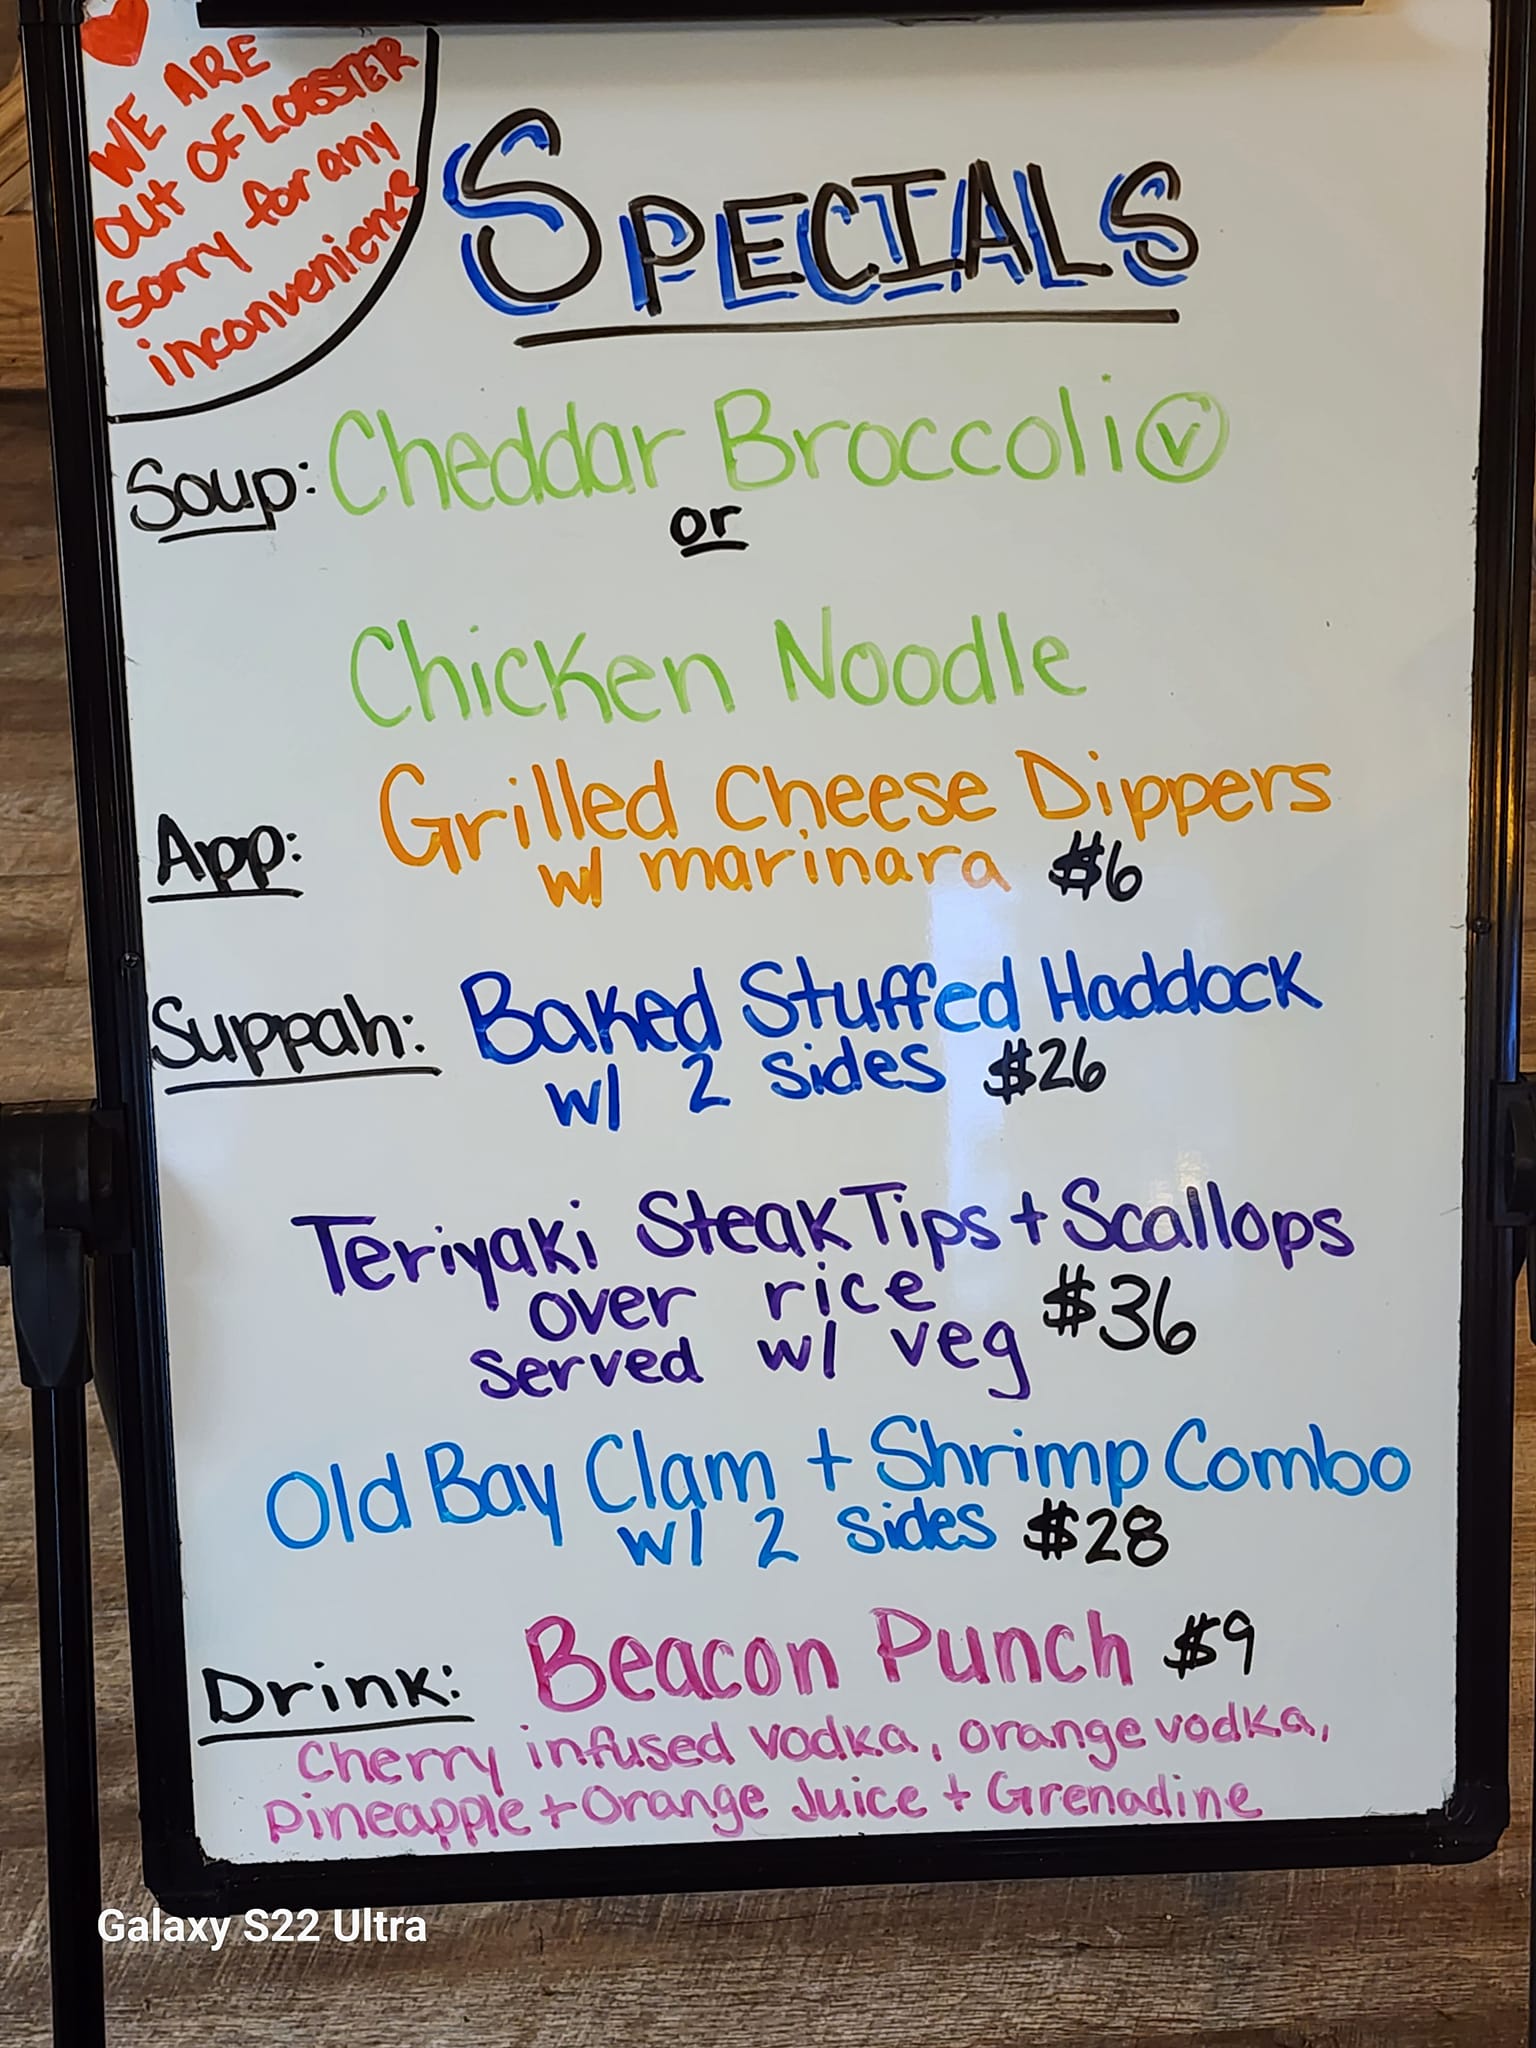 WE ARE
OUT OF LOBSTER
Sorry for any
inconvenience
SPECIALS
Soup: Cheddar Broccoli Ⓥ
or
Chicken Noodle
App: Grilled Cheese Dippers
w/ marinara $6
Suppah: Baked Stuffed Haddock
w/ 2 sides $26
Teriyaki Steak Tips + Scallops
over rice $36
served w/ veg
Old Bay Clam + Shrimp Combo
w/ 2 sides $28
Drink: Beacon Punch $9
Cherry infused vodka, orange vodka,
Pineapple + Orange Juice + Grenadine
Galaxy S22 Ultra